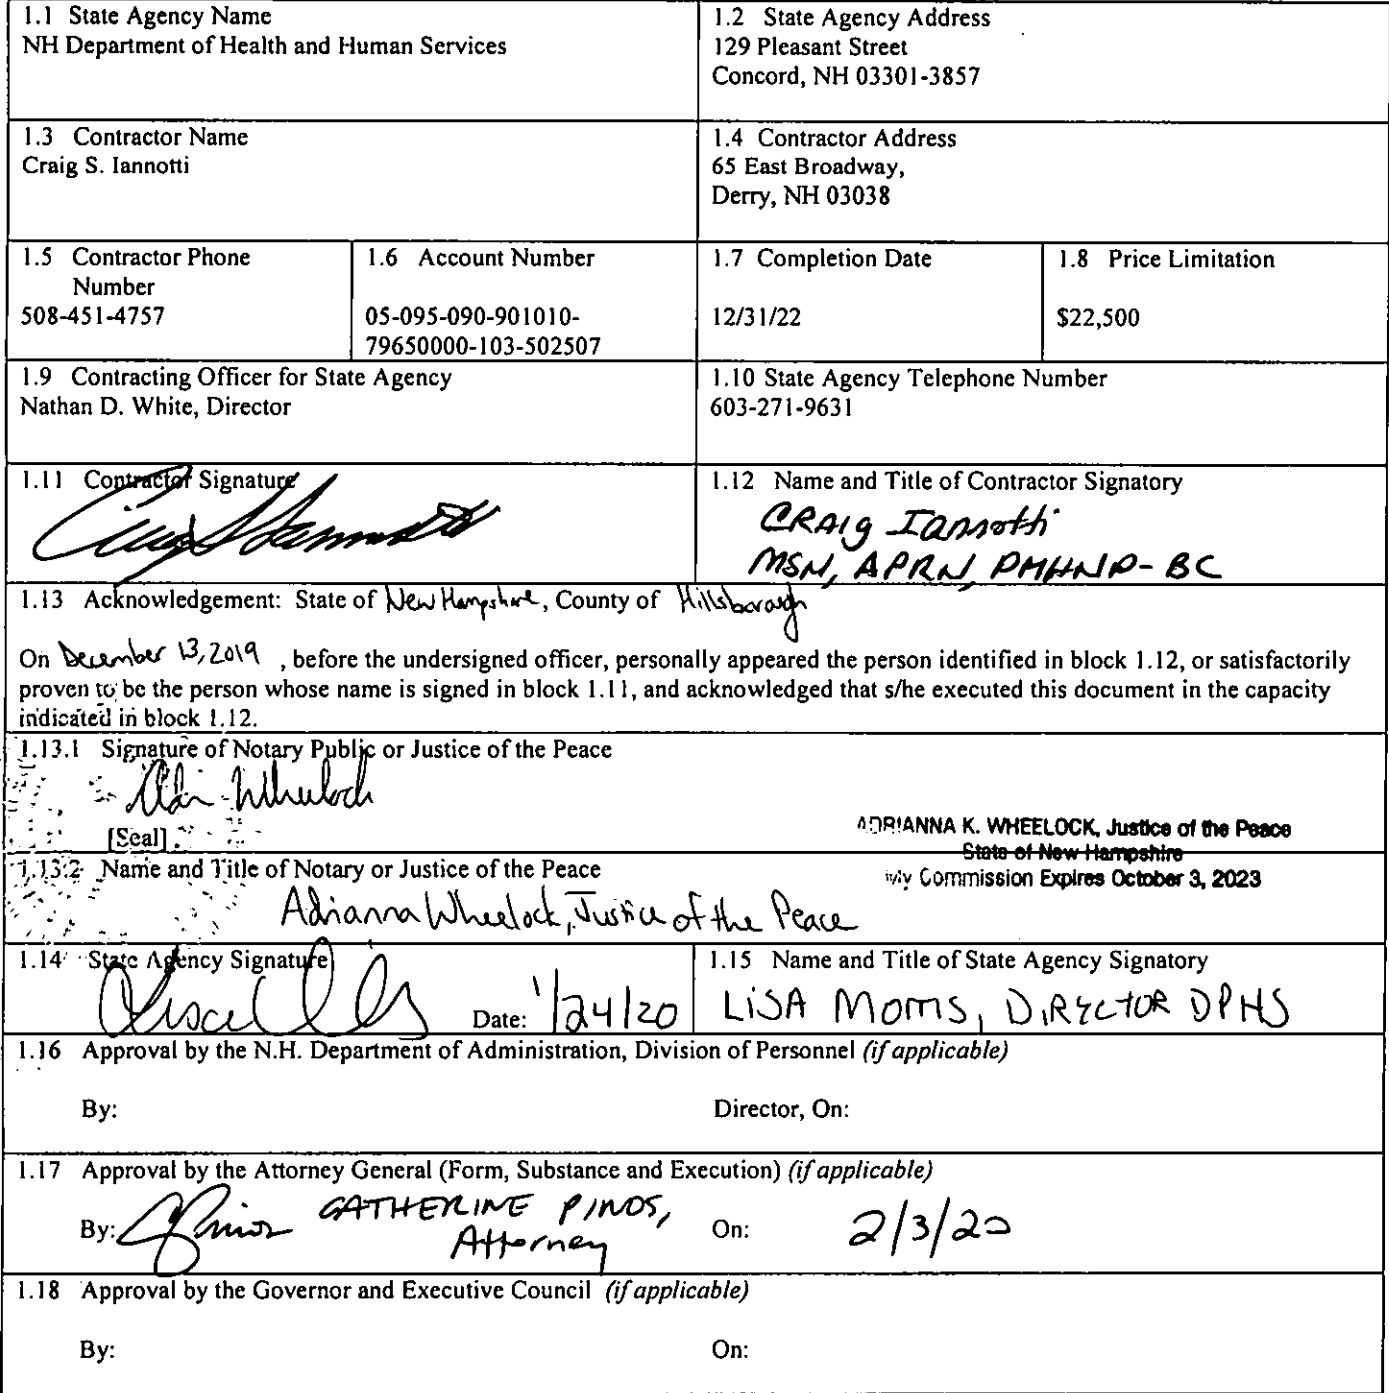 1.1 State Agency Name
NH Department of Health and Human Services
1.2 State Agency Address
129 Pleasant Street
Concord, NH 03301-3857
1.3 Contractor Name
Craig S. Iannotti
1.4 Contractor Address
65 East Broadway,
Derry, NH 03038
1.5 Contractor Phone
Number
508-451-4757
1.6 Account Number
05-095-090-901010-
79650000-103-502507
1.7 Completion Date
12/31/22
1.8 Price Limitation
$22,500
1.9 Contracting Officer for State Agency
Nathan D. White, Director
1.10 State Agency Telephone Number
603-271-9631
1.11 Contractor Signature
1.12 Name and Title of Contractor Signatory
CRAIg Iannotti
MSN, APRN, PMHNP-BC
1.13 Acknowledgement: State of New Hampshire, County of Hillsborough
On December 13, 2019 , before the undersigned officer, personally appeared the person identified in block 1.12, or satisfactorily
proven to be the person whose name is signed in block 1.11, and acknowledged that s/he executed this document in the capacity
indicated in block 1.12.
1.13.1 Signature of Notary Public or Justice of the Peace
[Seal]
ADRIANNA K. WHEELOCK, Justice of the Peace
State of New Hampshire
My Commission Expires October 3, 2023
1.13.2 Name and Title of Notary or Justice of the Peace
Adrianna Wheelock, Justice of the Peace
1.14 State Agency Signature
Date: 1/24/20
1.15 Name and Title of State Agency Signatory
LiSA MORRIS, DIRECTOR DPHS
1.16 Approval by the N.H. Department of Administration, Division of Personnel (if applicable)
By: Director, On:
1.17 Approval by the Attorney General (Form, Substance and Execution) (if applicable)
By: CATHERINE PINOS,
Attorney
On: 2/3/20
1.18 Approval by the Governor and Executive Council (if applicable)
By: On: